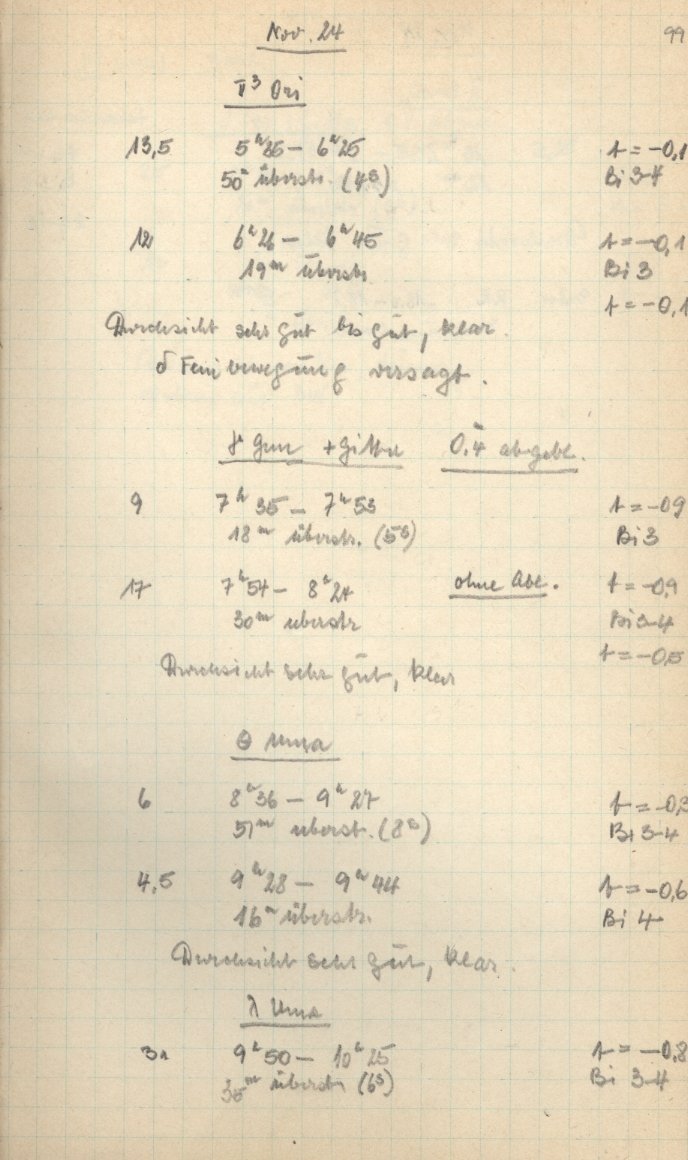 Nov. 24 99
π³ Ori
13,5 5ʰ35 – 6ʰ25 t = –0,1
50ᵐ überstr. (4ˢ) Bi 3-4
12 6ʰ26 – 6ʰ45 t = –0,1
19ᵐ überstr. Bi 3
t = –0,1
Durchsicht sehr gut bis gut, klar.
δ Feinbewegung versagt.
γ Gem + Gitter 0,4 abgebl.
9 7ʰ35 – 7ʰ53 t = –0,9
18ᵐ überstr. (5ˢ) Bi 3
17 7ʰ54 – 8ʰ24 ohne Abl. t = –0,9
30ᵐ überstr Bi 3-4
t = –0,5
Durchsicht sehr gut, klar
θ Uma
6 8ʰ36 – 9ʰ27 t = –0,3
51ᵐ überst. (8ˢ) Bi 3-4
4,5 9ʰ28 – 9ʰ44 t = –0,6
16ᵐ überstr. Bi 4
Durchsicht sehr gut, klar.
λ Uma
9ʰ50 – 10ʰ25 t = –0,8
35ᵐ überstr (6ˢ) Bi 3-4